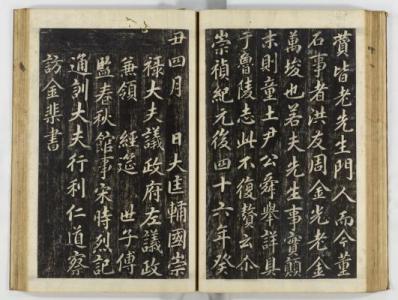 皆老先生門人而今董
石事者洪友周金光老金
萬埈也若夫先生事實顛
末則童土尹公舜擧詳具
于魯陵志此不復贅云尒
崇禎紀元後四十六年癸
丑四月 日大匡輔國崇
祿大夫議政府左議政
兼領 經筵 世子傅
監春秋館事宋時烈記
通訓大夫行利仁道察
訪金棐書